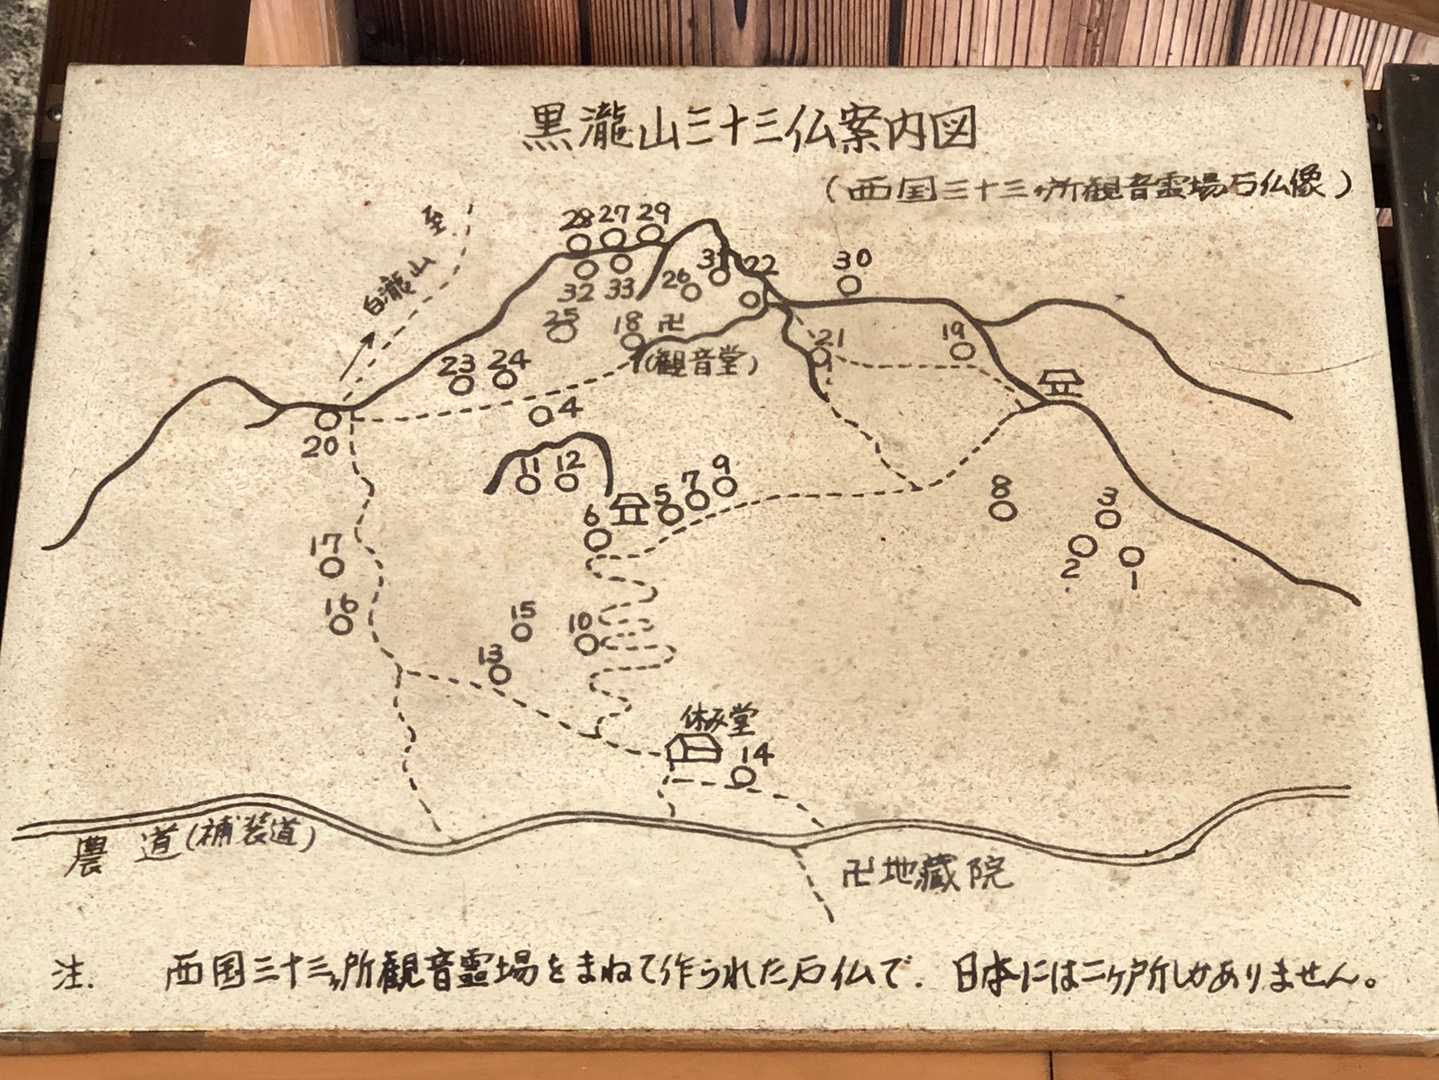 黒瀧山三十三仏案内図
(西国三十三ヶ所観音霊場石仏像)
至
白瀧山
28 27 29
32 33 26 31 22 30
25 18 卍
(観音堂)
21 19
23 24
4
20
11 12
6 5 7 9
8 3
2 1
17
16
15 10
13
休み堂
14
農道(補装道)
卍地蔵院
注. 西国三十三ヶ所観音霊場をまねて作られた石仏で. 日本には二ヶ所しかありません。